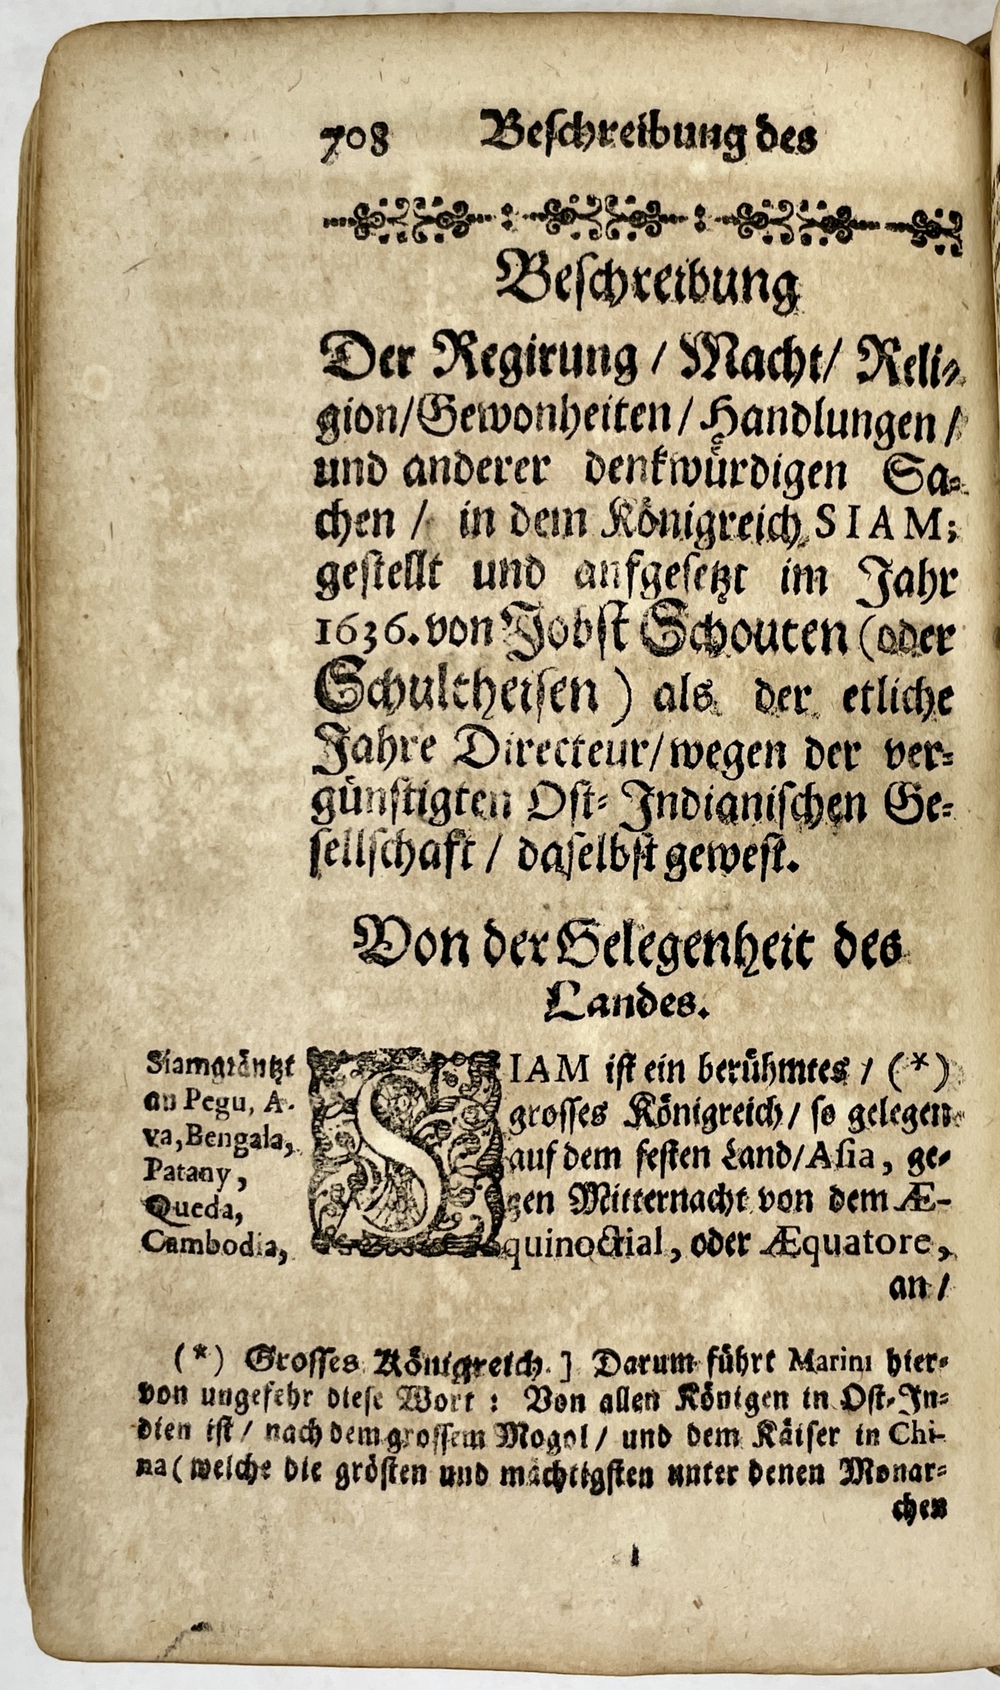 708 Beschreibung des
Beschreibung
Der Regirung / Macht / Reli-
gion / Gewonheiten / Handlungen /
und anderer denkwürdigen Sa-
chen / in dem Königreich SIAM;
gestellt und aufgesetzt im Jahr
1636. von Jobst Schouten (oder
Schultheisen) als der etliche
Jahre Directeur / wegen der ver-
günstigten Ost-Indianischen Ge-
sellschaft / daselbst gewest.
Von der Gelegenheit des
Landes.
Siam gräntzt
an Pegu, A-
va, Bengala,
Patany,
Queda,
Cambodia,
SIAM ist ein berühmtes / (*)
grosses Königreich / so gelegen
auf dem festen Land / Asia, ge-
gen Mitternacht von dem Æ-
quinoctial, oder Æquatore,
an /
(*) Grosses Königreich.] Darum führt Marini hier-
von ungefehr diese Wort: Von allen Königen in Ost-In-
dien ist / nach dem grossem Mogol / und dem Käiser in Chi-
na (welche die grösten und mächtigsten unter denen Monar-
chen